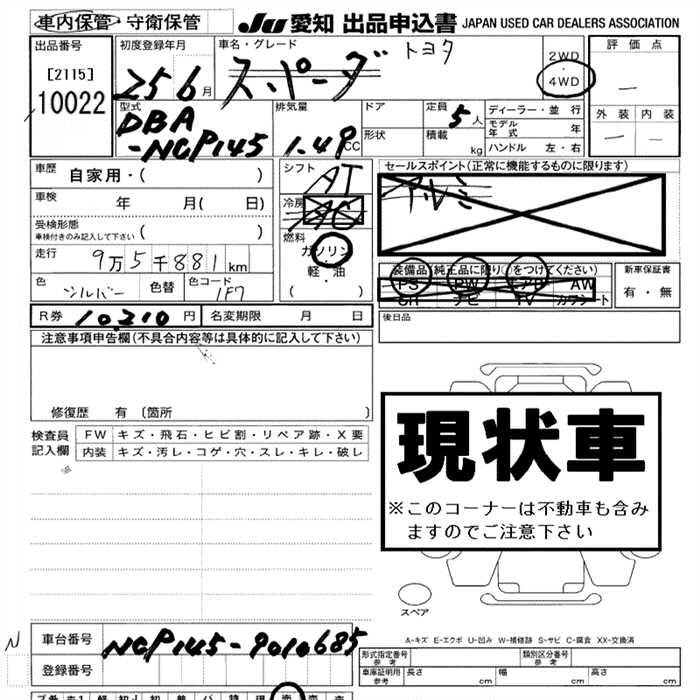 車内保管・守衛保管 JU 愛知 出品申込書 JAPAN USED CAR DEALERS ASSOCIATION
出品番号 初度登録年月 車名・グレード トヨタ 2WD・4WD 評価点
[2115] 25 6月 スペーダ —
10022
型式 DBA-NCP145 排気量 1.49 CC ドア 定員 5人 ディーラー・並行 外装 内装
形状 積載 kg モデル年式 年 — —
ハンドル 左・右
車歴 自家用・( ) シフト AT セールスポイント(正常に機能するものに限ります)
車検 年 月( 日) 冷房 AC アルミ
受検形態 車検付きのみ記入して下さい ( ) 燃料 ガソリン・軽・油 ( )
走行 9万5千881km 装備品 純正品に限り○をつけてください) 新車保証書
色 シルバー 色替 色コード 1F7 PS PW エアB AW 有・無
SR ナビ TV カワシート
R券 10,210円 名変期限 月 日 後日品
注意事項申告欄(不具合内容等は具体的に記入して下さい)
修復歴 有〔箇所 〕
現状車
※このコーナーは不動車も含みますのでご注意下さい
検査員記入欄 FW キズ・飛石・ヒビ割・リペア跡・X要
内装 キズ・汚レ・コゲ・穴・スレ・キレ・破レ
スペア
A-キズ E-エクボ U-凹み W-補修跡 S-サビ C-腐食 XX-交換済
N 車台番号 NCP145-9010685
登録番号
形式指定番号 参考 類別区分番号 参考
車庫証明用 参考 長さ cm 幅 cm 高さ cm